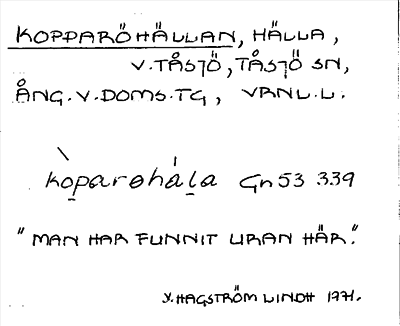 KOPPARÖHÄLLAN, HÄLLA,
V. TÅSJÖ, TÅSJÖ SN,
ÅNG. V. DOMS. TG, VRNL. L.
kòparohála Gn 53 339
"MAN HAR FUNNIT URAN HÄR."
V. HAGSTRÖM LINDH 1971.